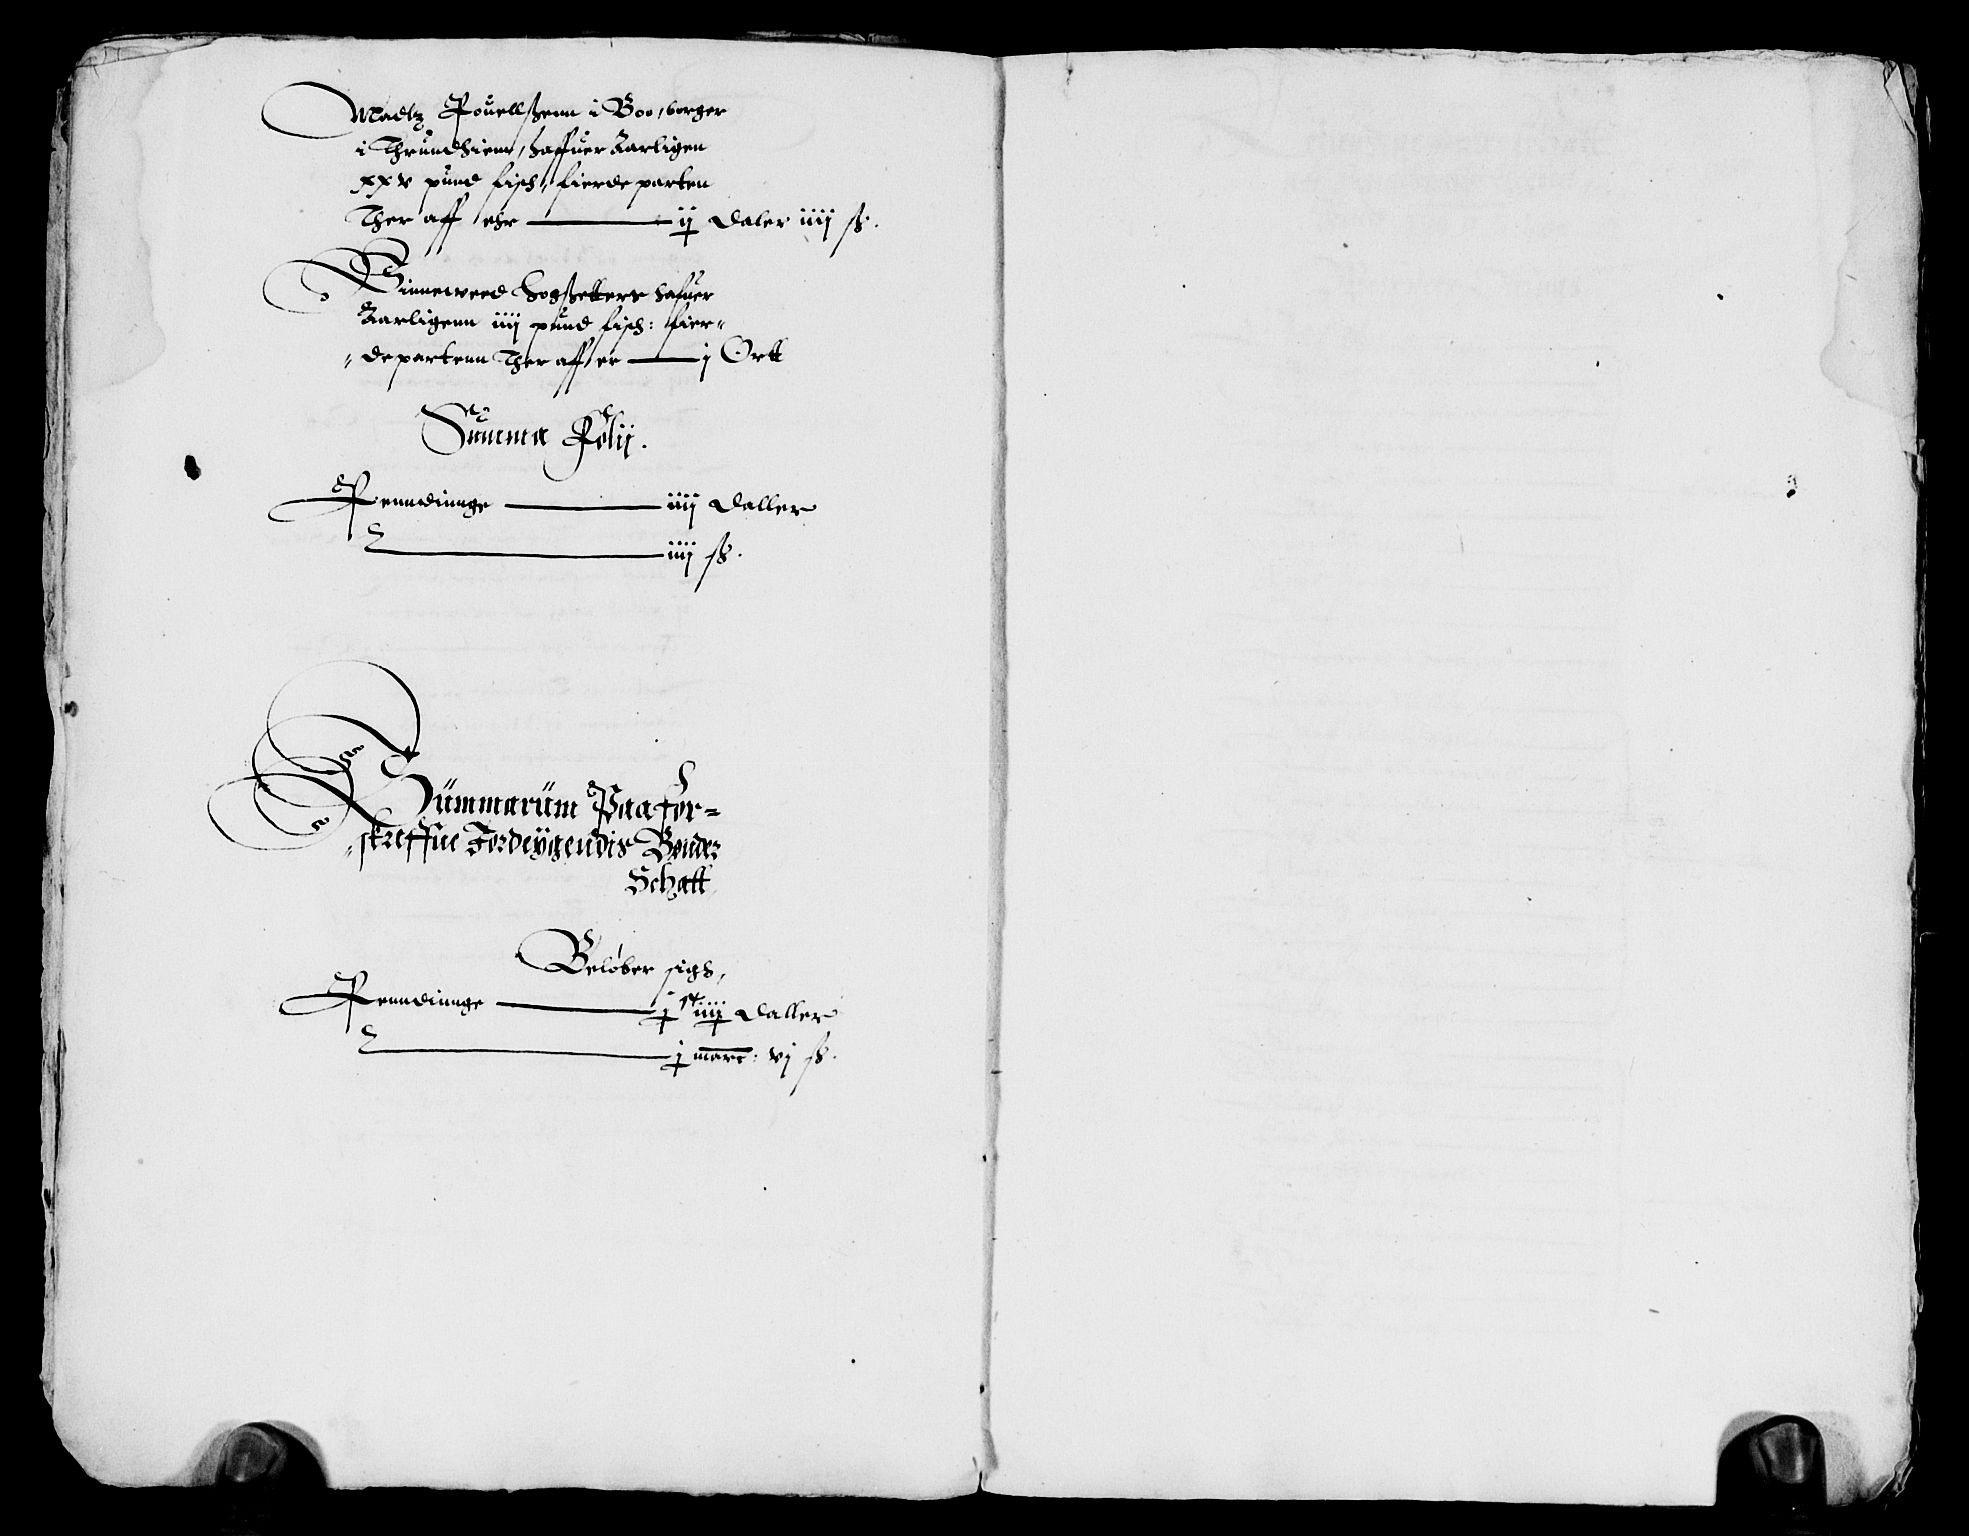 Madtz Pouellßenn i Boo, borger
i Thrundhiem, haffuer Aarligen
xxv pund fisch, fierde parten
Ther aff ehr ij daler iiij ß.
Sinneweed hogßetters hafuer
Aarligenn iiij pund fisch: fier-
departenn Ther aff er j Ortt
Summa Folij.
Penndinnge iiij daller
iiij ß.
Summarum Paa for-
skreffne Jordeygendis Bønder
Schatt
Beløber sigh,
Penndinnge daller
j marc: vj ß.